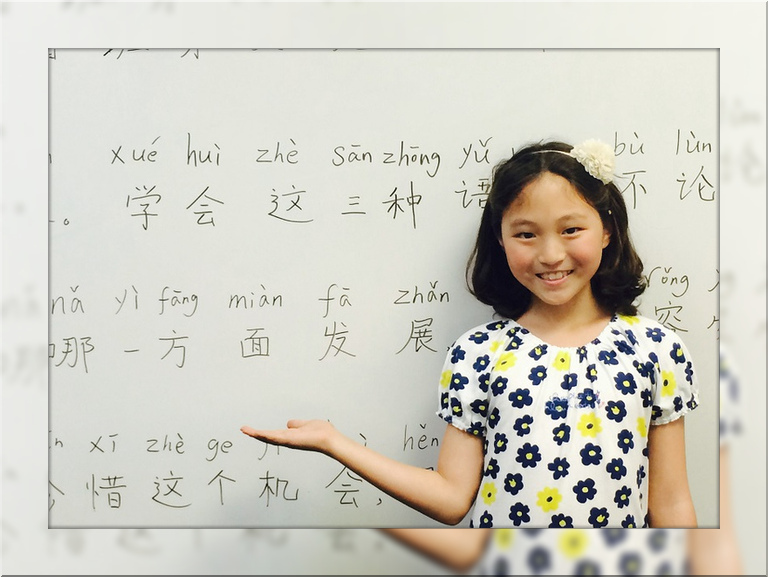 xué huì zhè sān zhōng yǔ bù lùn
。 学 会 这 三 种 语 不 论
nǎ yì fāng miàn fā zhǎn róng
哪 一 方 面 发 展, 容
xī zhè ge hěn
惜 这 个 机 会,